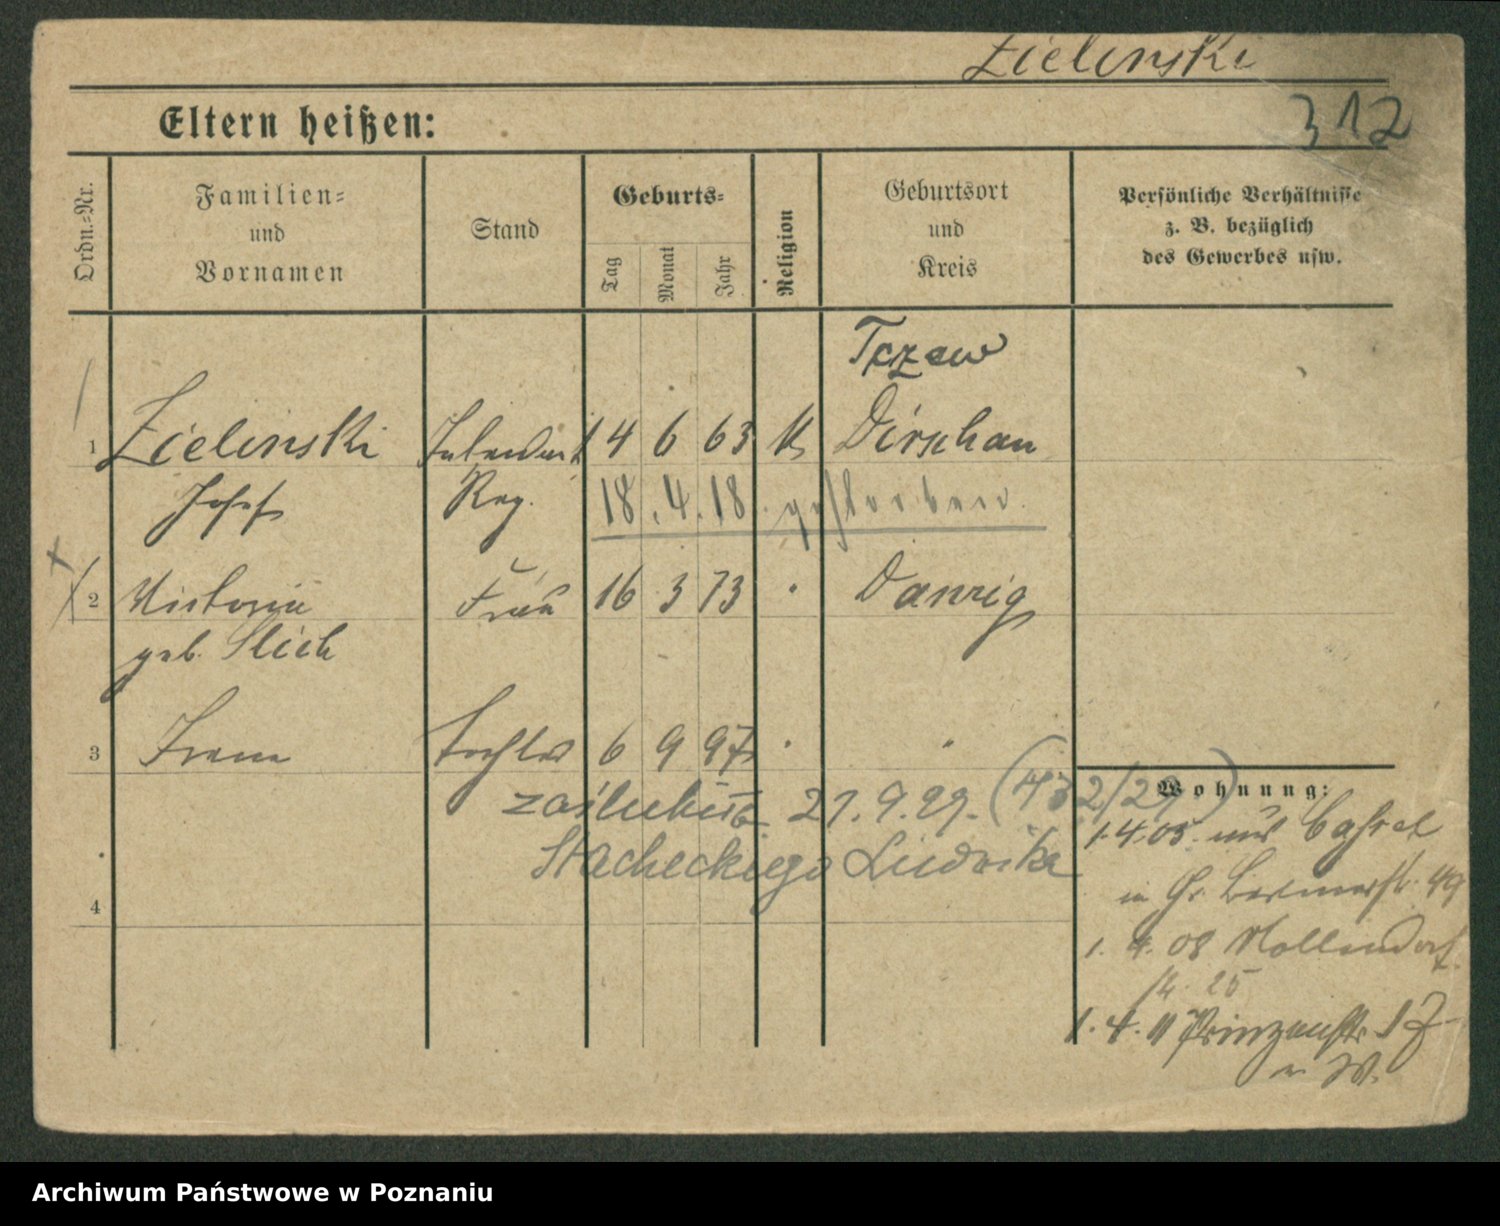 Zielinski
312
Eltern heißen:
Ordn.-Nr.
Familien-
und
Vornamen
Stand
Geburts-
Tag
Monat
Jahr
Religion
Geburtsort
und
Kreis
Persönliche Verhältnisse
z. B. bezüglich
des Gewerbes usw.
Tczew
1 Zielinski 14 6 63 k Dirschau
Josef Reg. 18.4.18. gestorben.
2 Victoria Frau 16 3 73 " Danzig
geb. Slich
3 Irene Tochter 6 9 97 " "
zaślubiła 21.9.29. (432/29)
Stacheckiego Ludwika
4
Wohnung:
1.4.05. aus
in Gr. Berlinerstr. 49
1. 4. 08 Mollendorf
str. 25
1. 4. 11 Prinzenstr. 17
n W.
Archiwum Państwowe w Poznaniu